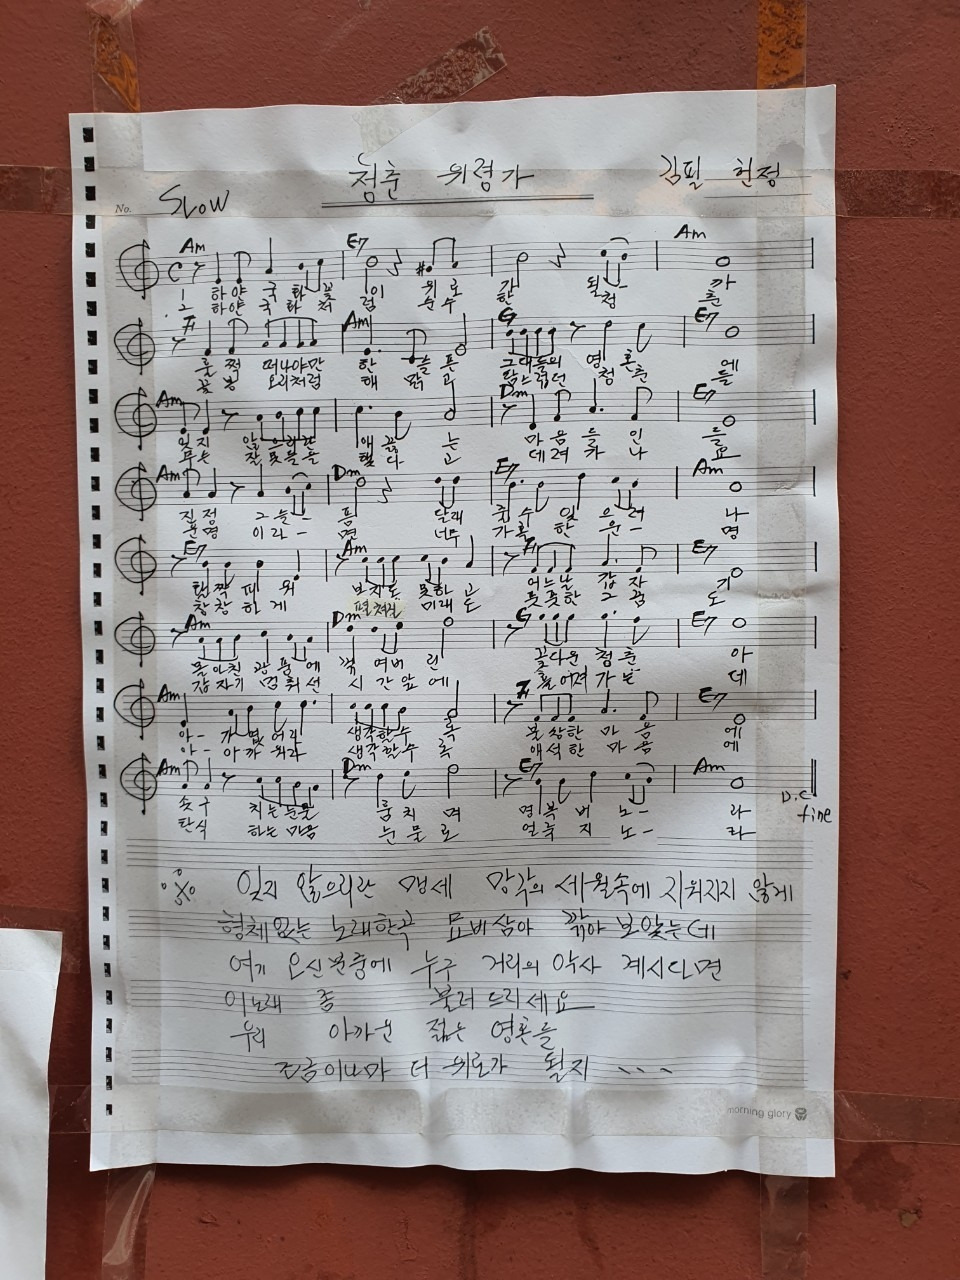 청춘 위령가
김필 헌정
No.
SLOW
Am E7 Am
1 하얀 국화꽃 잎 위로 간 될 까
2 하얀 국화 처 럼 순수 한 청- 춘
F Am G E7
훌쩍 떠나야만 한 슬픈 그대들의 영혼 에
꽃봉 오리처럼 해 맑고 탐스럽던 청춘 들
Am Dm E7
잊지 않으리란 애끓 는 마음들 인 들
잘못을 고 데려 가나 요
Am Dm E7 Am
진정 그늘- 픔 달래 줄수 있으려 나
운명 이라- 면 너무 가혹 한 운- 명
E7 Am F E7
활짝 피워 보지도 못하고 어느날 갑자 기
창창 하게 펼쳐질 미래도 풋풋한 그 꿈 도
Am Dm G E7
몰아친 광풍에 꺾여버 린 꽃다운 청춘 아
갑자기 멈춰선 시간앞에 흩어져 가는 데
Am F E7
아- 가엾어라 생각할수 록 불쌍한 마음 에
아- 아까워라 생각할수 록 애석한 마음 에
Am Dm E7 Am
솟구 치는눈물 훔치 며 명복 비노- 라
탄식 하는 마음 눈물로 얼룩 지노- 라
D.C
fine
잊지 않으리란 맹세 망각의 세월속에 지워지지 않게
형체없는 노래한곡 묘비삼아 깎아 보았는데
여기 오신분중에 누구 거리의 악사 계시다면
이노래 좀 불러 드리세요
우리 아까운 젊은 영혼들
조금이나마 더 위로가 될지 、、、
morning glory